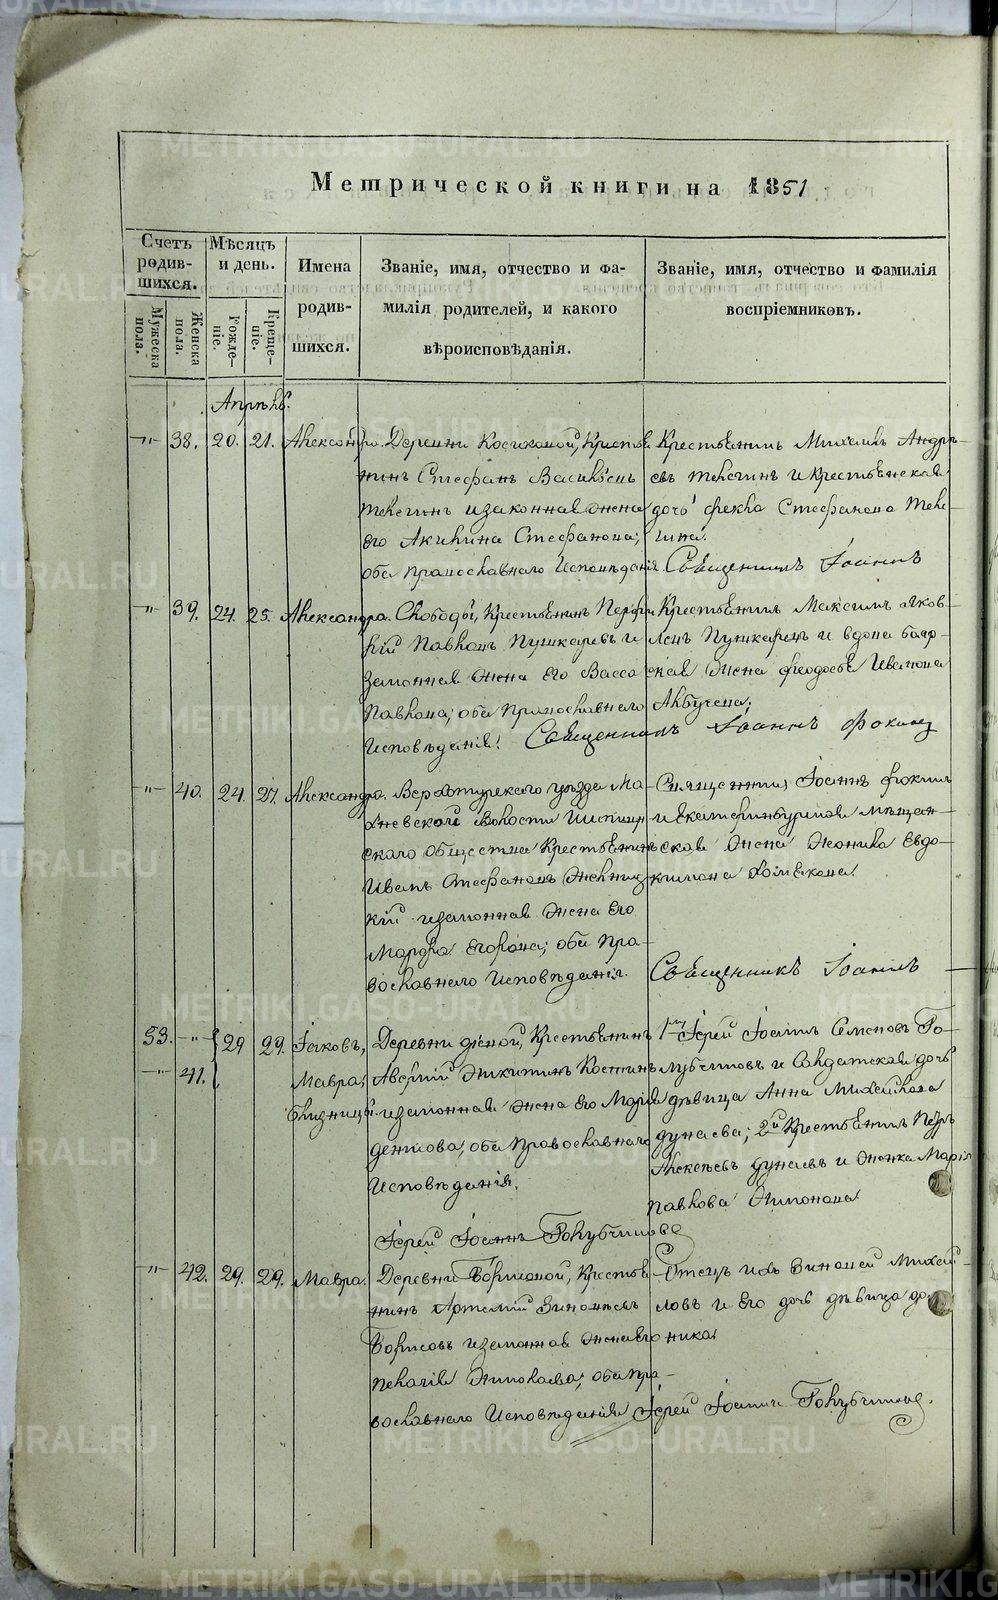 Метрической книги на 1851
Счетъ родив-шихся.
Мѣсяцъ и день.
Имена родив-шихся.
Званіе, имя, отчество и фа-
милія родителей, и какого
вѣроисповѣданія.
Званіе, имя, отчество и фамилія
воспріемниковъ.
Мужеска пола.
Женска пола.
Рожде-ніе.
Креще-ніе.
Апрѣль.
-"- 38. 20. 21. Александра. Деревни Косиковой, Крестья
нинъ Стефанъ Васильевъ
Текгинъ и законная жена
его Акилина Стефанова;
оба православнаго Исповѣданія.
Крестьянинъ Михаилъ Андрѣ-
евъ Текгинъ и крестьянская
дочь Фекла Стефанова Теке-
гина.
Священникъ Іоаннъ
-"- 39. 24. 25. Александра. Слободы, Крестьянинъ Перфи
лій Павловъ Пушкаревъ и
законная жена его Васса
Павлова; оба Православнаго
Исповѣданія.
Крестьянинъ Максимъ Яков-
левъ Пушкаревъ и вдова бояр-
ская жена Феодосья Иванова
Албычева;
Священникъ Іоаннъ Фокинъ
-"- 40. 24. 27. Александра. Верхотурскаго уѣзда Ма-
хневской волости
скаго общества Крестьянинъ
Иванъ Стефановъ
кій и законная жена его
Марфа Егорова; оба Пра-
вославнаго Исповѣданія.
Священникъ Іоаннъ Фокинъ
и Екатеринбургская мѣщан-
ская жена Евдо-
кимова
Священникъ Іоаннъ
53. -"- 29 29. Іаковъ,
-"- 41. Мавра,
близнецы.
Деревни Крестьянинъ
Аверкій Никитинъ Костинъ
и законная жена его Марія
оба православнаго
Исповѣданія.
1й Іерей Іоаннъ Семеновъ Го-
лубчиковъ и Солдатская дочь
дѣвица Анна Михайлова
Дунаева; 2й Крестьянинъ Петръ
Алексѣевъ Дунаевъ и женка Марія
Павлова
Іерей Іоаннъ Голубчиковъ
-"- 42. 29. 29. Мавра. Деревни Борисовой, Крестья
нинъ Артемій Зиновьевъ
Борисовъ и законная жена его
Пелагія Николаева; оба Пра-
вославнаго Исповѣданія
Отецъ ихъ Зиновей Михай-
ловъ и его дочь дѣвица До
ника
Іерей Іоаннъ Голубчиковъ.
METRIKI.GASO-URAL.RU